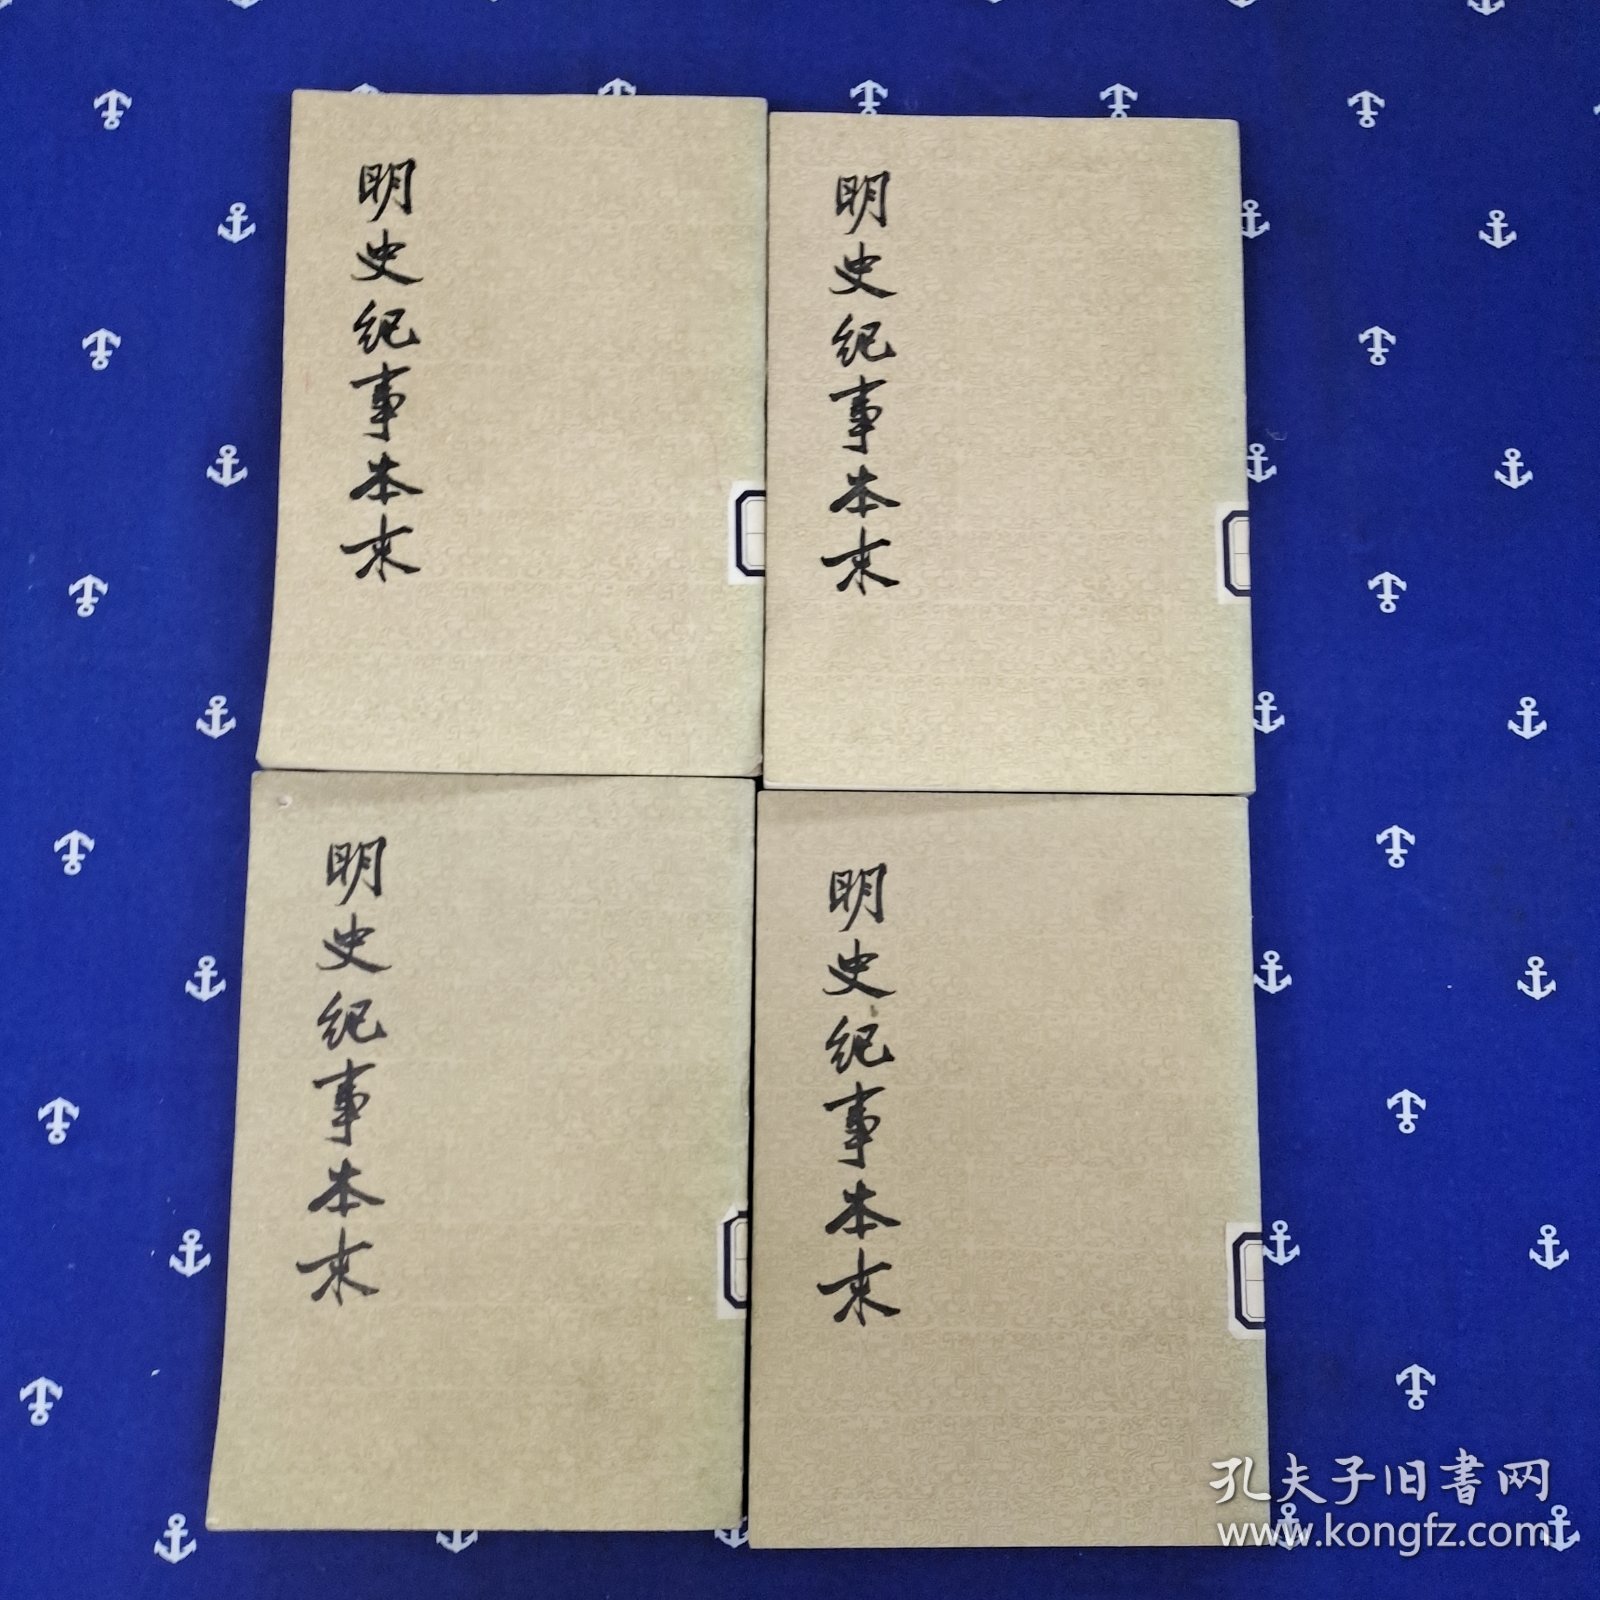 明史纪事本末
明史纪事本末
明史纪事本末
明史纪事本末
孔夫子旧書网
www.kongfz.com